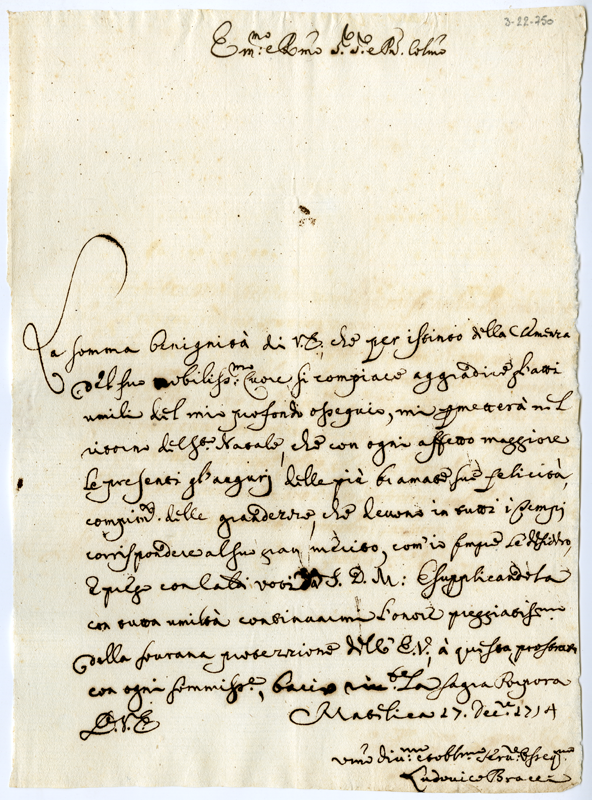 3-22-750
Em:mo e Rmo Sr. Sr. e Pn. Colmo
La somma benignità di V.E., che per istinto della Clemenza
del suo nobiliss:mo Cuore si compiace aggradire gl'atti
umili del mio profondo ossequio, mi permetterà nel
ritorno del S:to Natale, che con ogni affetto maggiore
Le presenti gl'augurj delle più bramate sue felicità,
compim:to delle grandezze, che devono in tutti i tempi
corrispondere al suo gran merito, com'io sempre Le desidero,
e prego con la di voti S. D. M: E supplicandola
con tutta umiltà continuarmi l'onore preggiatiss:mo
della sourana protezzione dell'E.V., à questa prostrato
con ogni sommiss:e, bacio La Sagra Porpora
D.V.E. Matelica 17. Dec:re 1714
umo diu:mo et obbl:mo Ser:re osseq:mo
Ludovico Bracci